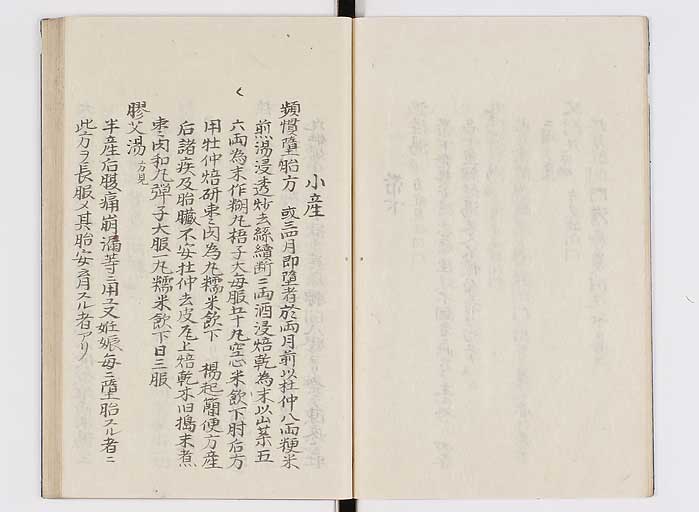 小産
頻慣墮胎方 或三四月即墮者於両月前以杜仲八両粳米
煎湯浸透炒去絲續断二両酒浸焙乾為末以山薬五
六両為末作糊丸梧子大毎服五十丸空心米飲下肘后方
用杜仲焙研枣肉為丸糯米飲下 楊起簡便方産
后諸疾及胎臓不安杜仲去皮瓦上焙乾木臼搗末煮
枣肉和丸弾子大服一丸糯米飲下日三服
膠艾湯 方見
半産后腹痛崩漏等ニ用ユ又妊娠毎ニ墮胎スル者ニ
此方ヲ長服〆其胎安
月スル者アリ